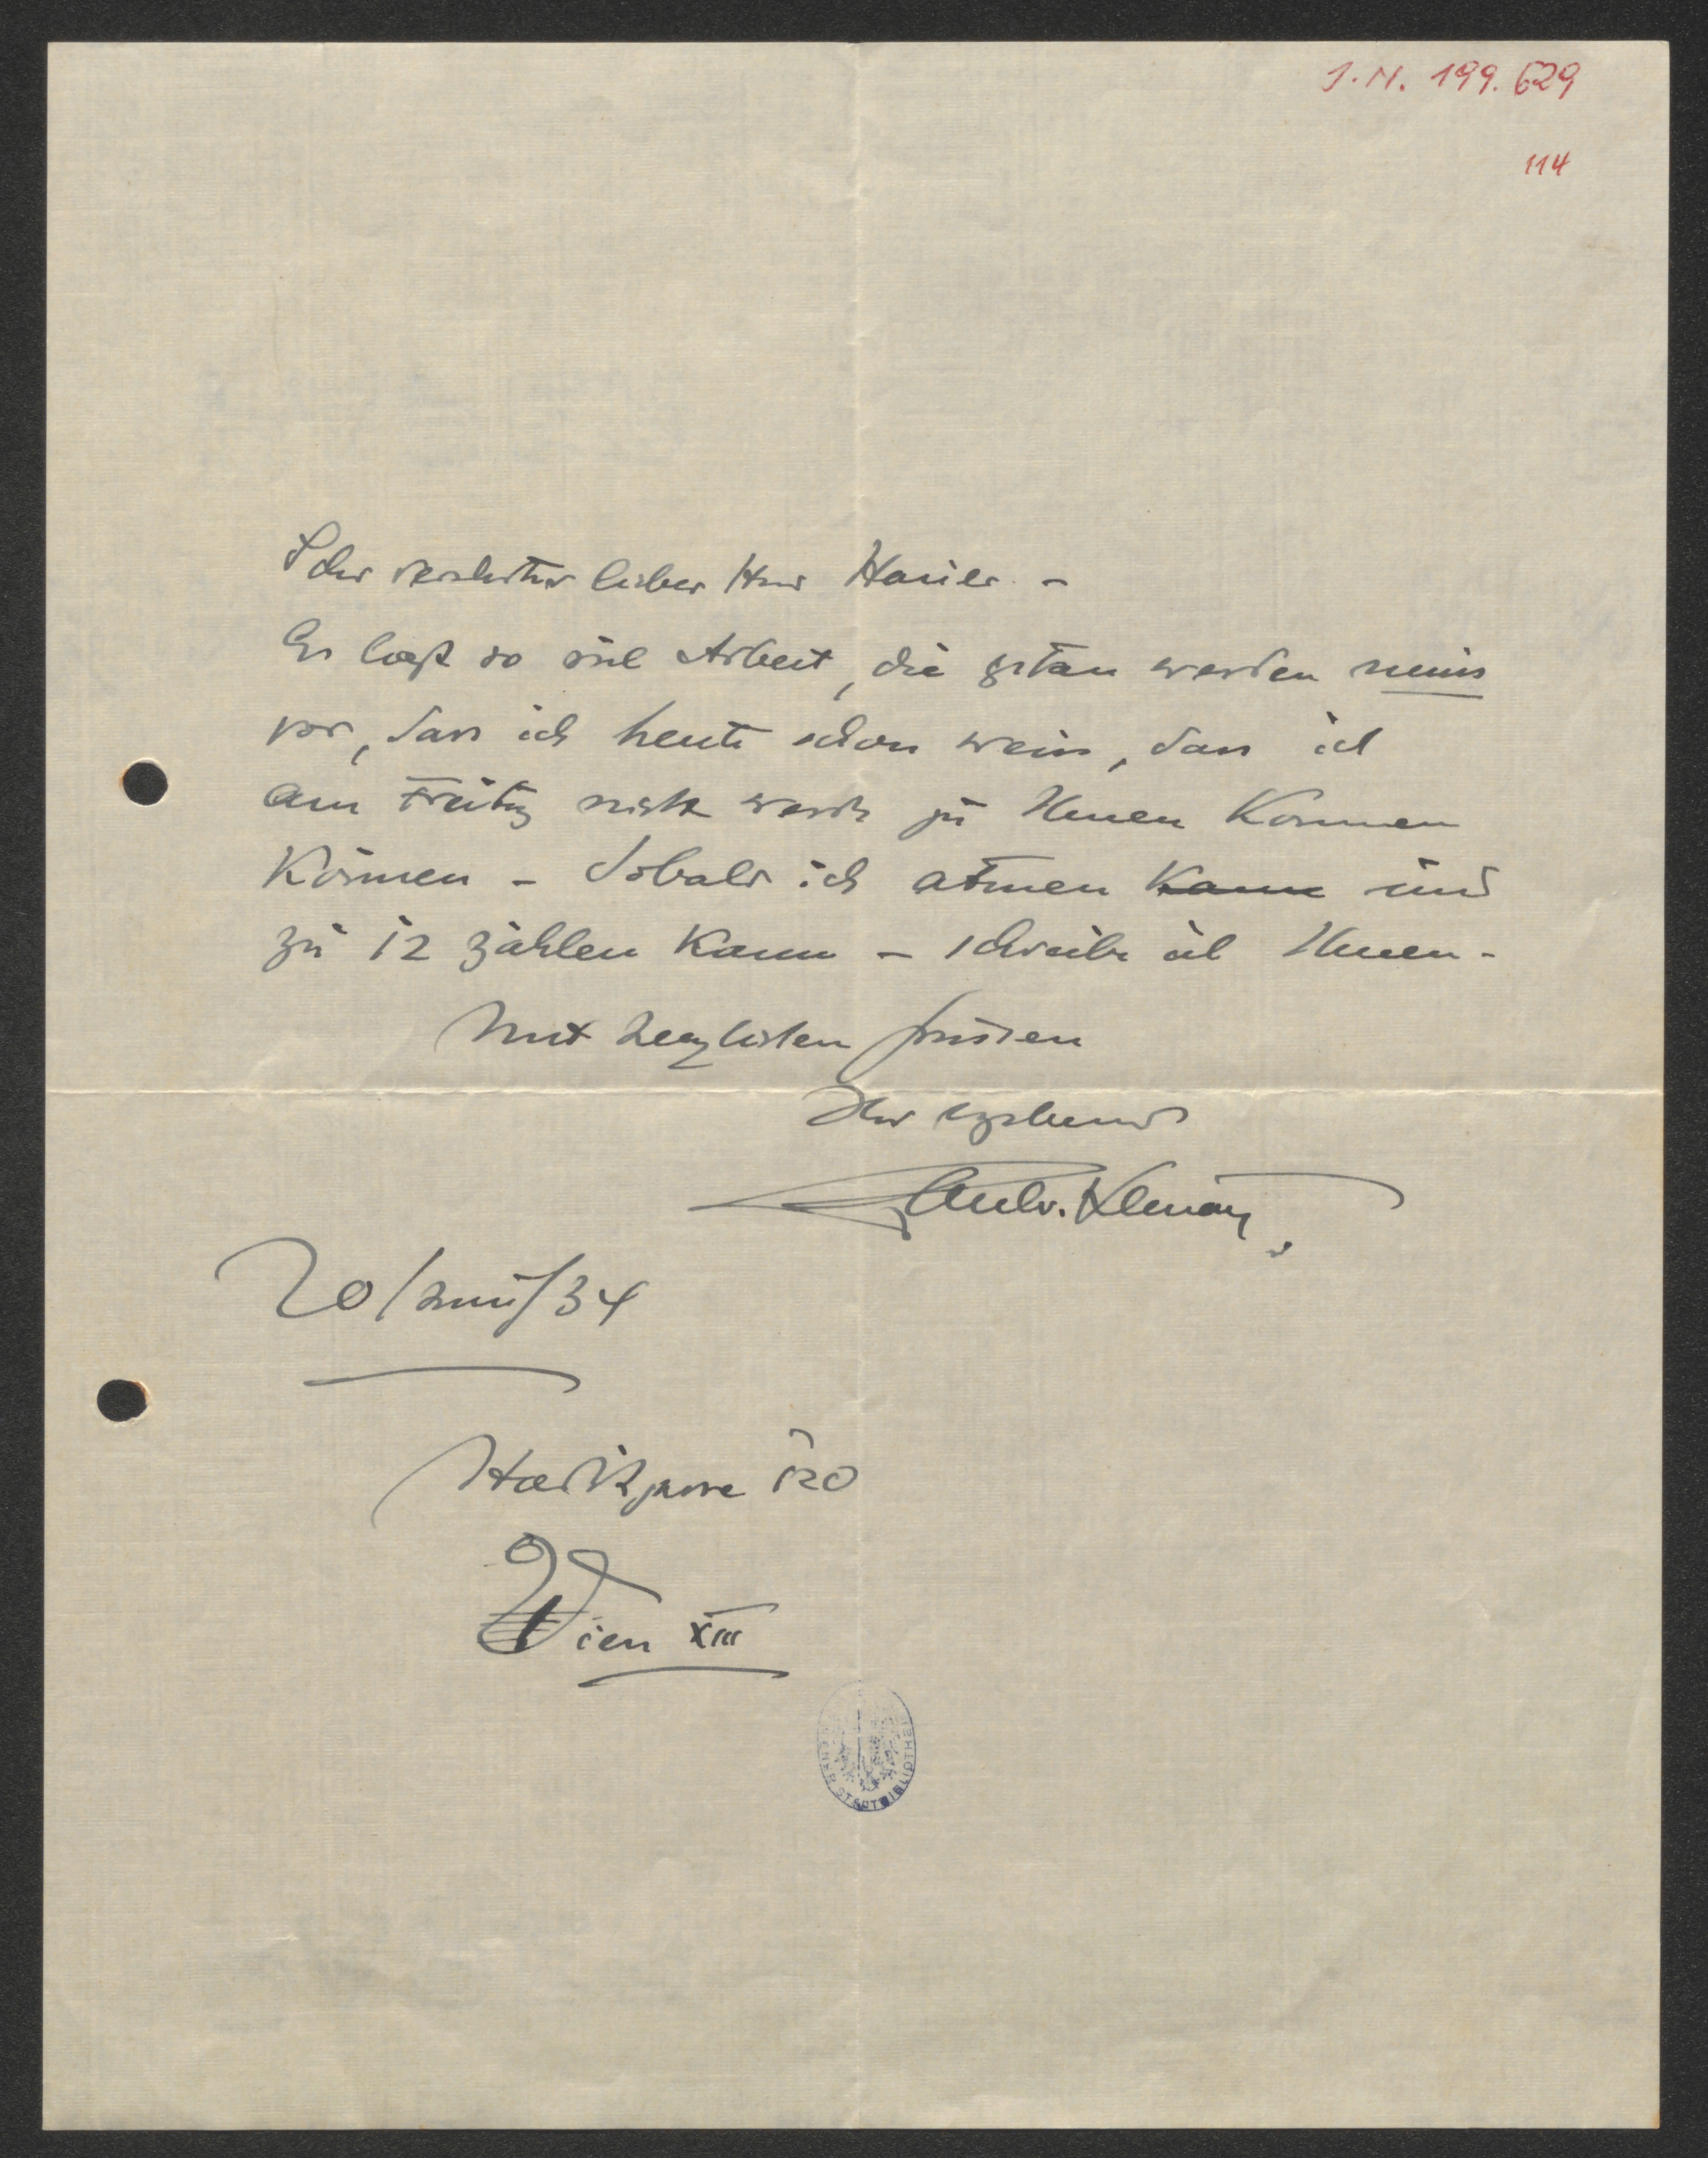 J. N. 199.629
114
Sehr verehrter lieber Herr Hauer. –
Es liegt so viel Arbeit, die getan werden muss
vor, dass ich heute schon weiss, dass ich
am Freitag nicht werde zu Ihnen kommen
können – Sobald ich atmen kann und
zu 12 zählen kann – schreibe ich Ihnen –
Mit herzlichen Grüssen
Ihr ergebener
20/Juni/34
120
Wien XIII
WIENER STADTBIBLIOTHEK